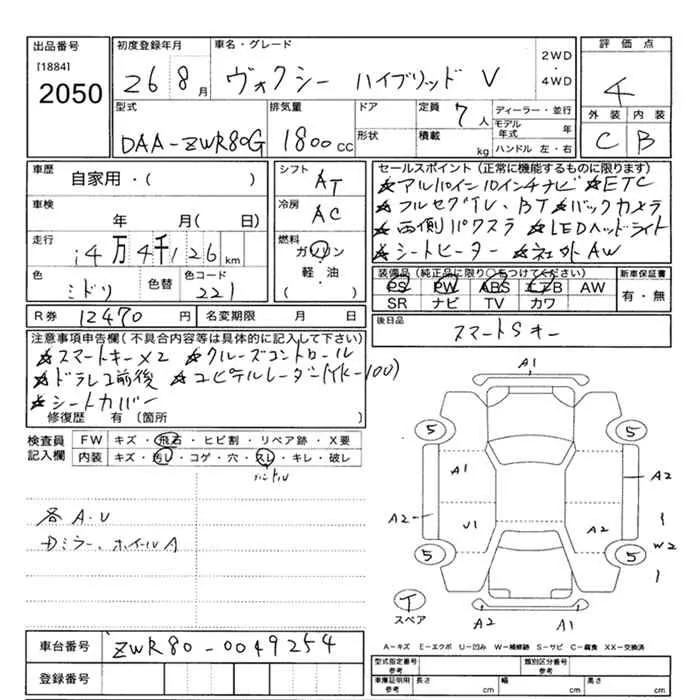 出品番号
[1884]
2050
初度登録年月
26 8月
車名・グレード
ヴォクシー ハイブリッド V
2WD
・
4WD
評価点
4
外装 内装
C B
型式
DAA-ZWR80G
排気量
1800cc
ドア
形状
定員 7人
積載 kg
ディーラー・並行
モデル年式 年
ハンドル 左・右
車歴
自家用・( )
車検
年 月( 日)
走行
14万4千126km
色
ミドリ
色替
色コード
221
シフト
AT
冷房
AC
燃料
ガソリン
・
軽・油
( )
セールスポイント(正常に機能するものに限ります)
★アルパイン10インチナビ ★ETC
★フルセグTV、BT ★バックカメラ
★両側パワスラ ★LEDヘッドライト
★シートヒーター ★社外AW
装備品(純正品に限り○をつけてください)
PS PW ABS エアB AW
SR ナビ TV カワ
新車保証書
有・無
R券 12470円
名変期限 月 日
後日品
スマートSキー
注意事項申告欄(不具合内容等は具体的に記入して下さい)
★スマートキー×2 ★クルーズコントロール
★ドラレコ前後 ★ユピテルレーダー(YK-100)
★シートカバー
修復歴 有〔箇所 〕
検査員
記入欄
FW キズ・飛石・ヒビ割・リペア跡・X要
内装 キズ・汚レ・コゲ・穴・スレ・キレ・破レ
ハンドル
各A・U
Dミラー、ホイールA
A1
5 5
A1 A2
A2 U1 A2
W2
5 5
T
スペア
A2 A1
A-キズ E-エクボ U-凹み W-補修跡 S-サビ C-腐食 XX-交換済
車台番号 ZWR80-0049254
登録番号
型式指定番号
参考
類別区分番号
参考
車庫証明用
参考
長さ cm
幅 cm
高さ cm